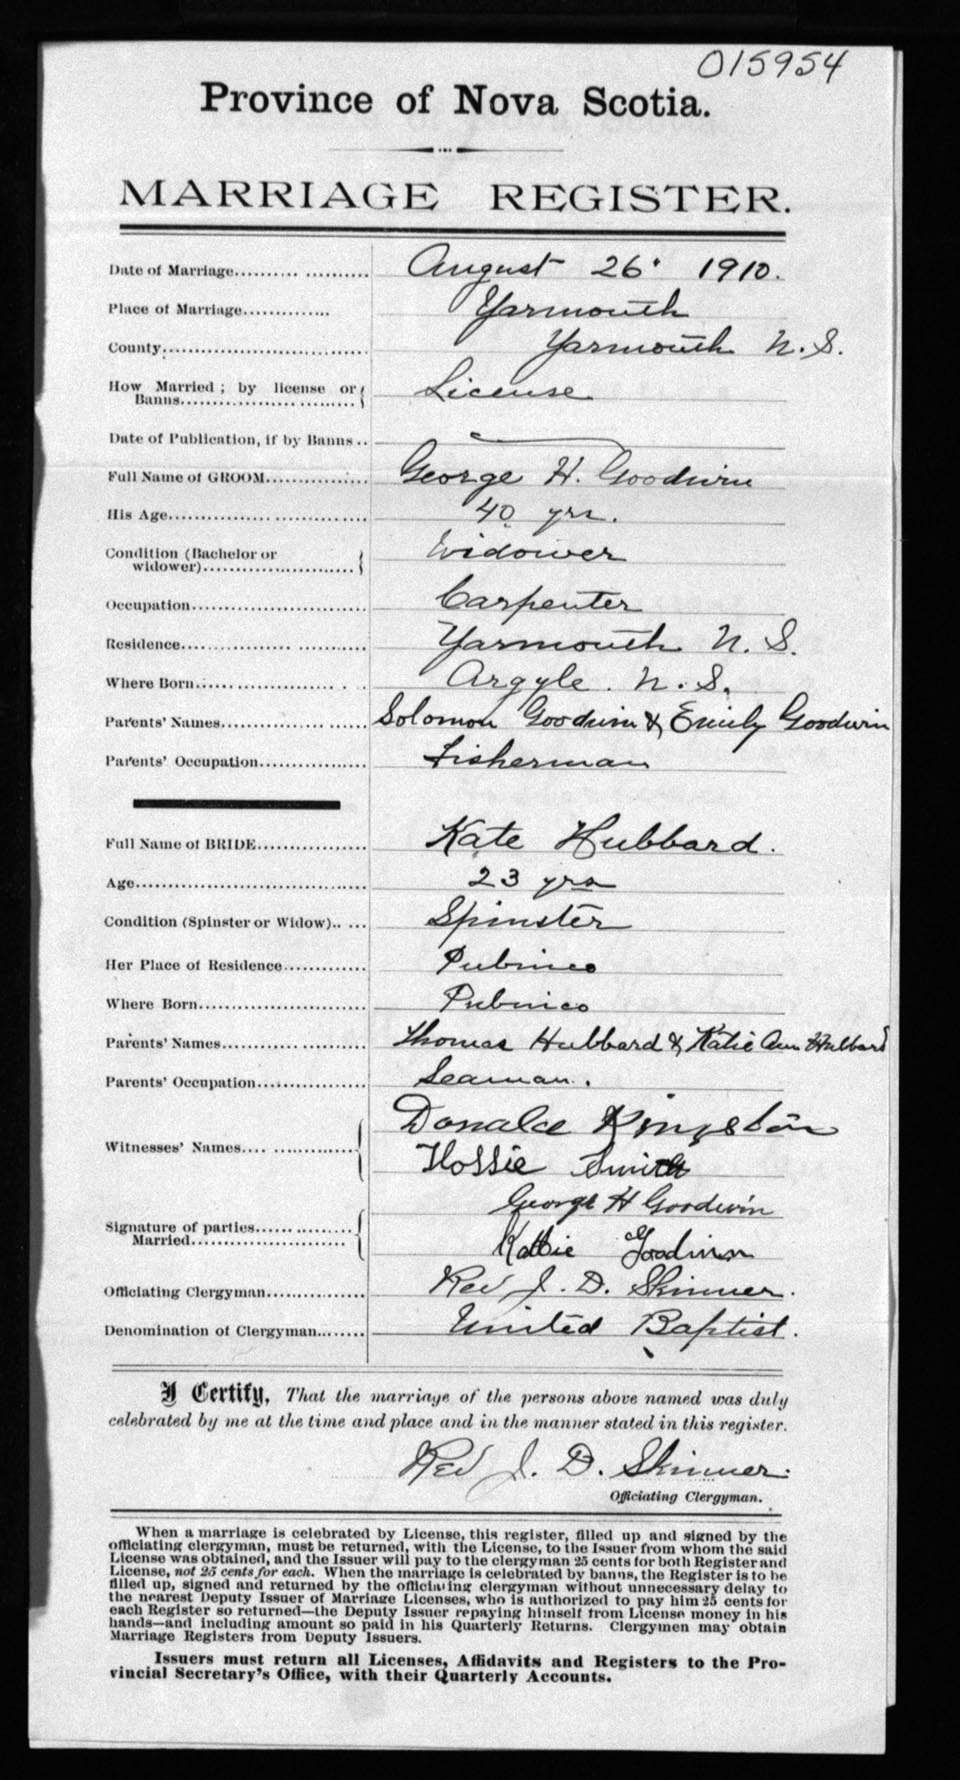 015954
Province of Nova Scotia.
MARRIAGE REGISTER.
Date of Marriage.................... August 26. 1910.
Place of Marriage.............. Yarmouth
County............................... Yarmouth N.S.
How Married; by license or License
Banns....................
Date of Publication, if by Banns..
Full Name of GROOM............... George H. Goodwin
His Age.............................. 40 yrs.
Condition (Bachelor or Widower
widower).......................
Occupation.......................... Carpenter
Residence........................... Yarmouth N. S.
Where Born.......................... Argyle. N. S.
Parents' Names..................... Solomon Goodwin & Emily Goodwin
Parents' Occupation................ Fisherman
Full Name of BRIDE................ Kate Hubbard.
Age.................................. 23 yrs
Condition (Spinster or Widow)..... Spinster
Her Place of Residence............ Pubnico
Where Born.......................... Pubnico
Parents' Names..................... Thomas Hubbard & Katie Ann Hubbard
Parents' Occupation................ Seaman.
Donald Kingston
Witnesses' Names...................
Flossie Smith
George H Goodwin
Signature of parties..............
Married.......................
Katie Goodwin
Officiating Clergyman.............. Rev J. D. Skinner.
Denomination of Clergyman........ United Baptist.
I Certify, That the marriage of the persons above named was duly
celebrated by me at the time and place and in the manner stated in this register.
Rev J. D. Skinner.
Officiating Clergyman.
When a marriage is celebrated by License, this register, filled up and signed by the
officiating clergyman, must be returned, with the License, to the Issuer from whom the said
License was obtained, and the Issuer will pay to the clergyman 25 cents for both Register and
License, not 25 cents for each. When the marriage is celebrated by banns, the Register is to be
filled up, signed and returned by the officiating clergyman without unnecessary delay to
the nearest Deputy Issuer of Marriage Licenses, who is authorized to pay him 25 cents for
each Register so returned—the Deputy Issuer repaying himself from License money in his
hands—and including amount so paid in his Quarterly Returns. Clergymen may obtain
Marriage Registers from Deputy Issuers.
Issuers must return all Licenses, Affidavits and Registers to the Pro-
vincial Secretary's Office, with their Quarterly Accounts.